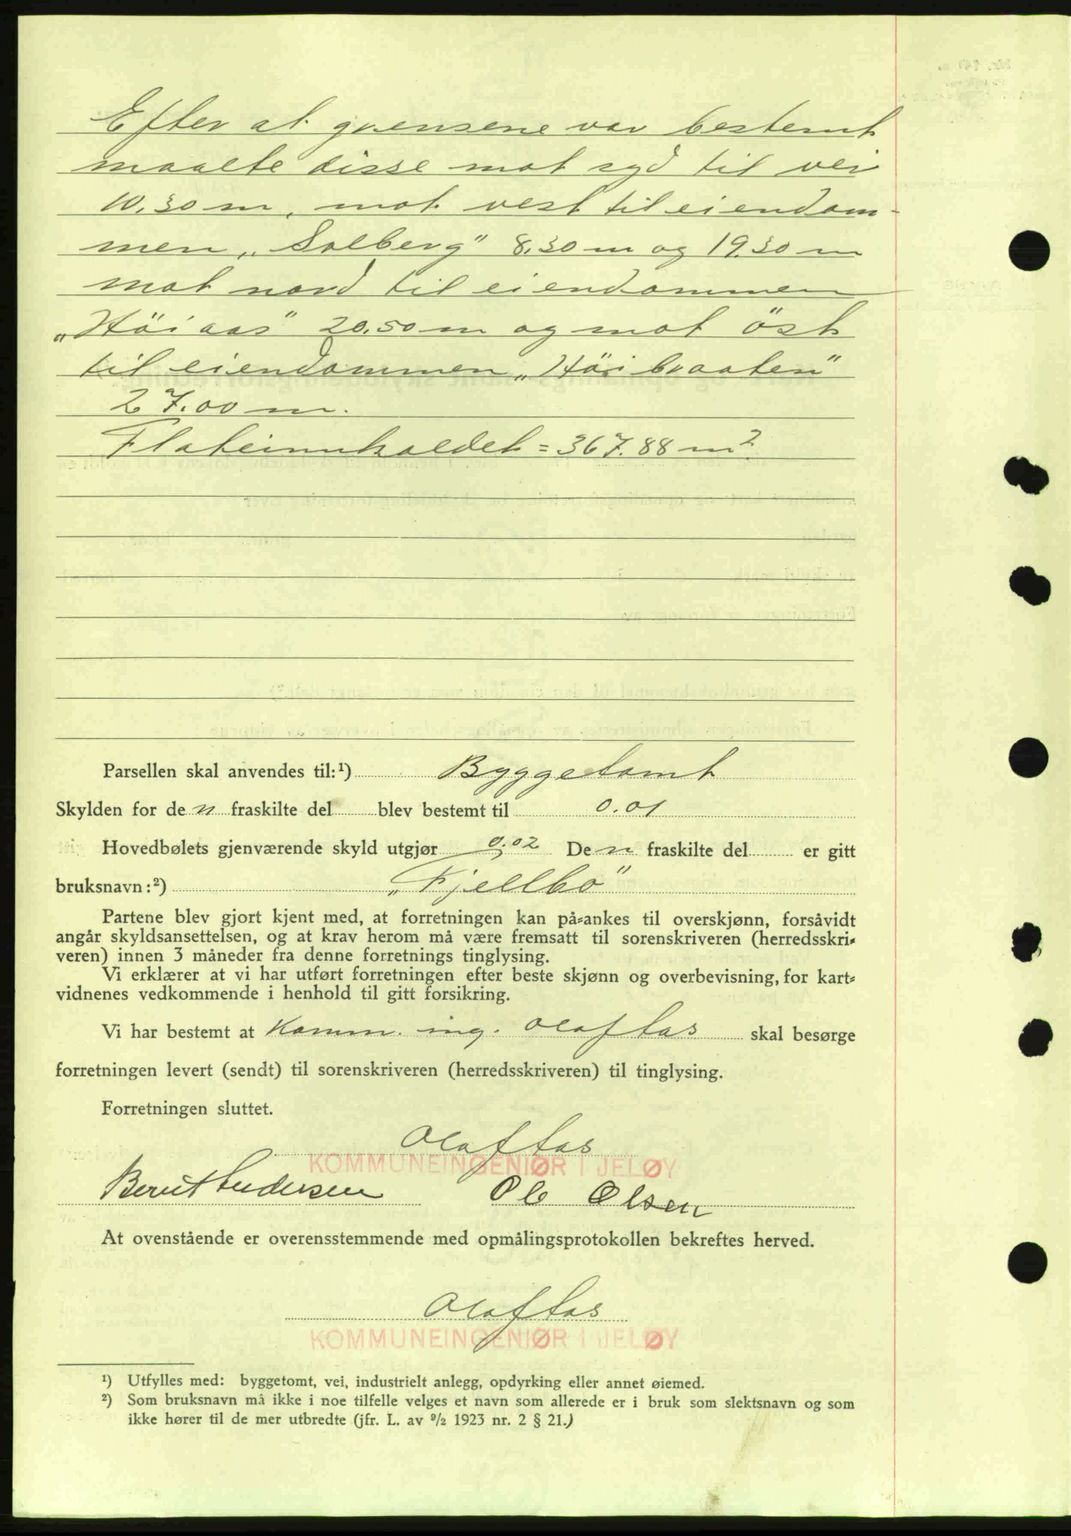 Efter at grensene var bestemt
maalte disse mot syd til vei
10.30 m, mot vest til eiendom-
men „Solberg" 8.30 m og 19.30 m
mot nord til eiendommen
„Höiaas" 20.50 m og mot öst
til eiendommen „Höibraaten"
27.00 m.
Flateinnholdet = 367.88 m².
Parsellen skal anvendes til:¹) Byggetomt
Skylden for de n fraskilte del blev bestemt til 0.01
Hovedbølets gjenværende skyld utgjør 0.02 De n fraskilte del er gitt
bruksnavn:²) „Fjellbo"
Partene blev gjort kjent med, at forretningen kan på-ankes til overskjønn, forsåvidt
angår skyldsansettelsen, og at krav herom må være fremsatt til sorenskriveren (herredsskri-
veren) innen 3 måneder fra denne forretnings tinglysing.
Vi erklærer at vi har utført forretningen efter beste skjønn og overbevisning, for kart-
vidnenes vedkommende i henhold til gitt forsikring.
Vi har bestemt at Komm. ing. Olaf Aas skal besørge
forretningen levert (sendt) til sorenskriveren (herredsskriveren) til tinglysing.
Forretningen sluttet.
Olaf Aas
KOMMUNEINGENIØR I JELØY
Bernt Andersen Ole Olsen
At ovenstående er overensstemmende med opmålingsprotokollen bekreftes herved.
Olaf Aas
KOMMUNEINGENIØR I JELØY
¹) Utfylles med: byggetomt, vei, industrielt anlegg, opdyrking eller annet øiemed.
²) Som bruksnavn må ikke i noe tilfelle velges et navn som allerede er i bruk som slektsnavn og som
ikke hører til de mer utbredte (jfr. L. av ⁹/₂ 1923 nr. 2 § 21.)